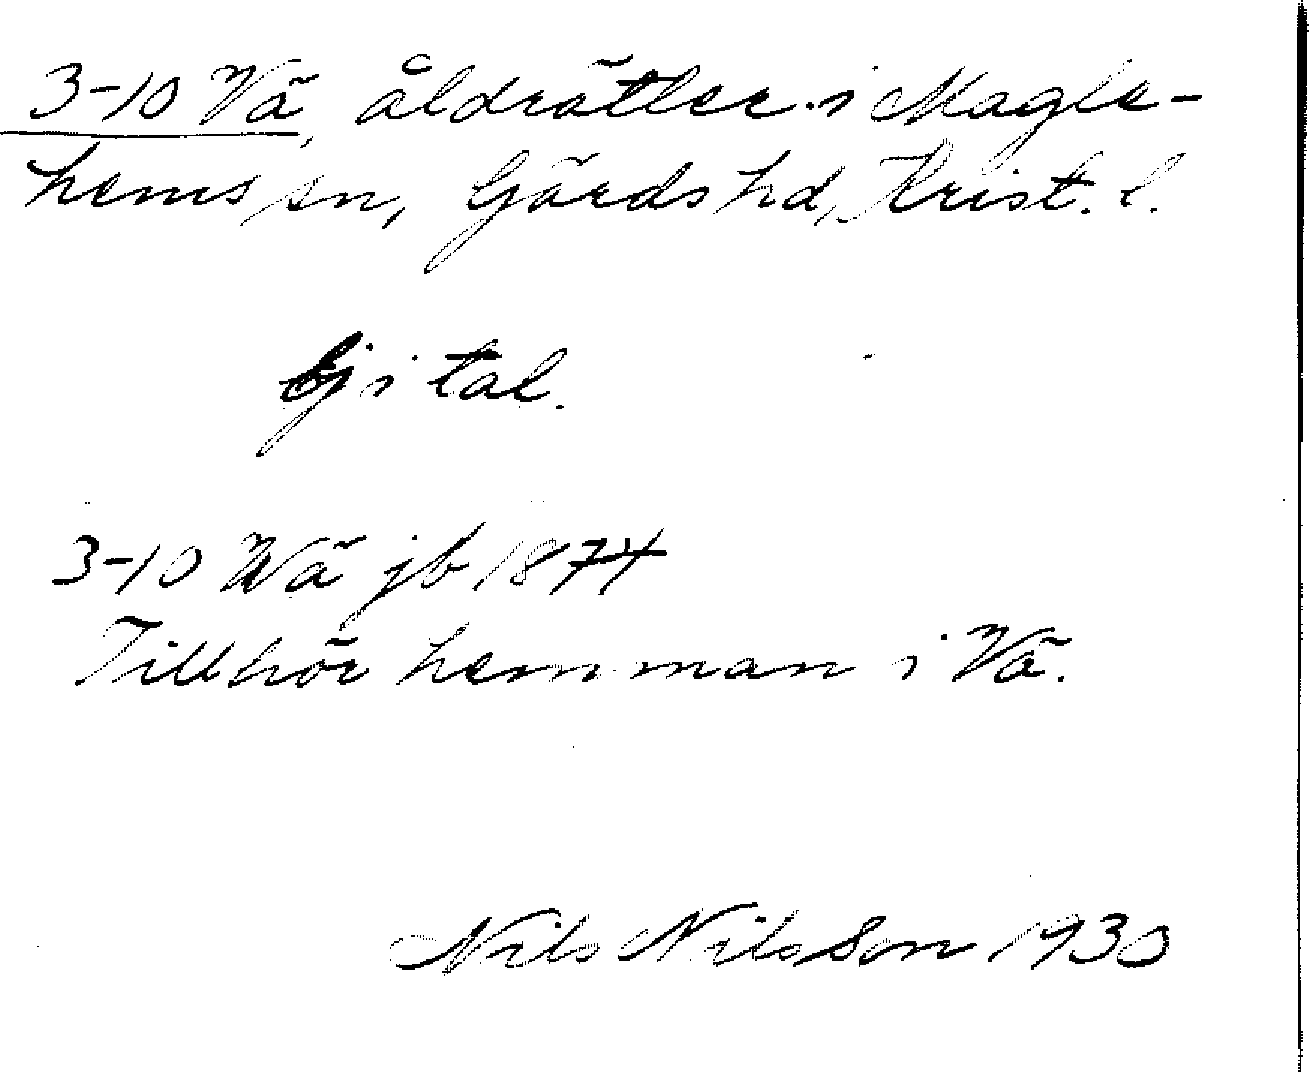 3-10 Vä, åldrätter i Magle-
hems sn, Gärds hd, Krist. l.
Ej i tal.
3-10 Wä jb 1874
Tillhör hemman i Vä.
Nils Nilsson 1930